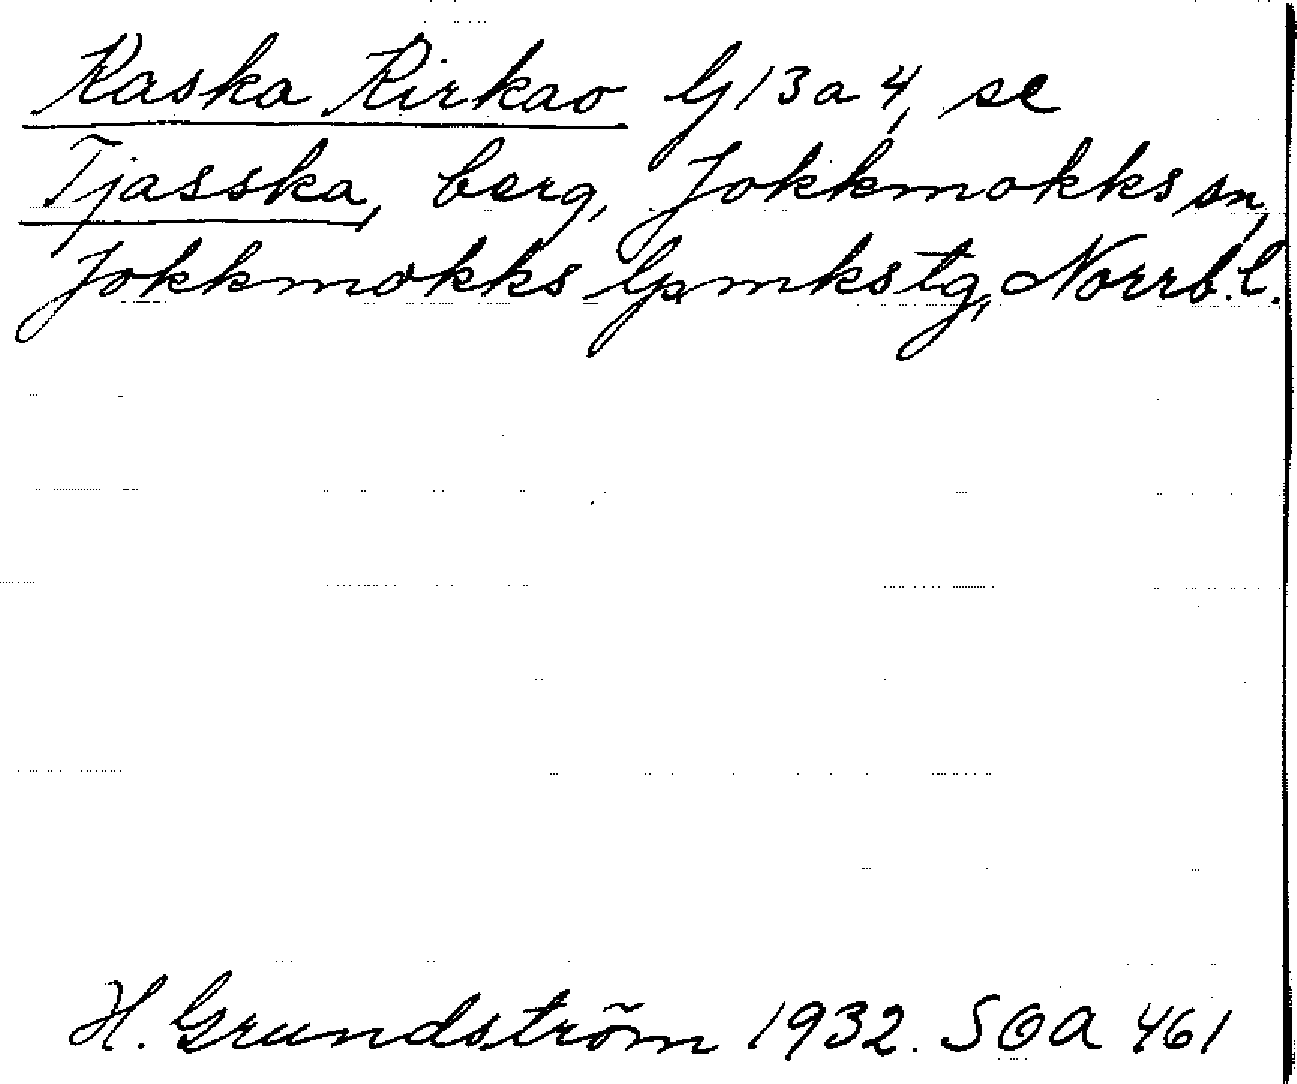 Kaska Kirkao G13a4, se
Tjasska, berg, Jokkmokks sn,
Jokkmokks lpmkstg, Norrb.l.
H. Grundström 1932. SOA 461